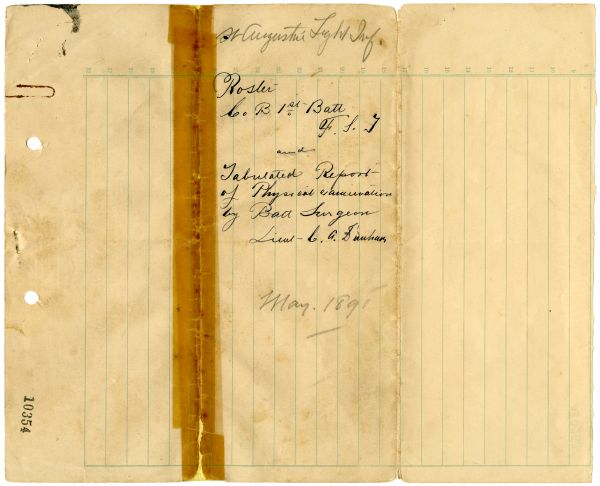 St Augustine Light Inf
Roster
Co. B 1st Batt
F. S. T
and
Tabulated Report
of Physical examination
by Batt Surgeon
Lieut - C. A. Dunham
May. 189
10354